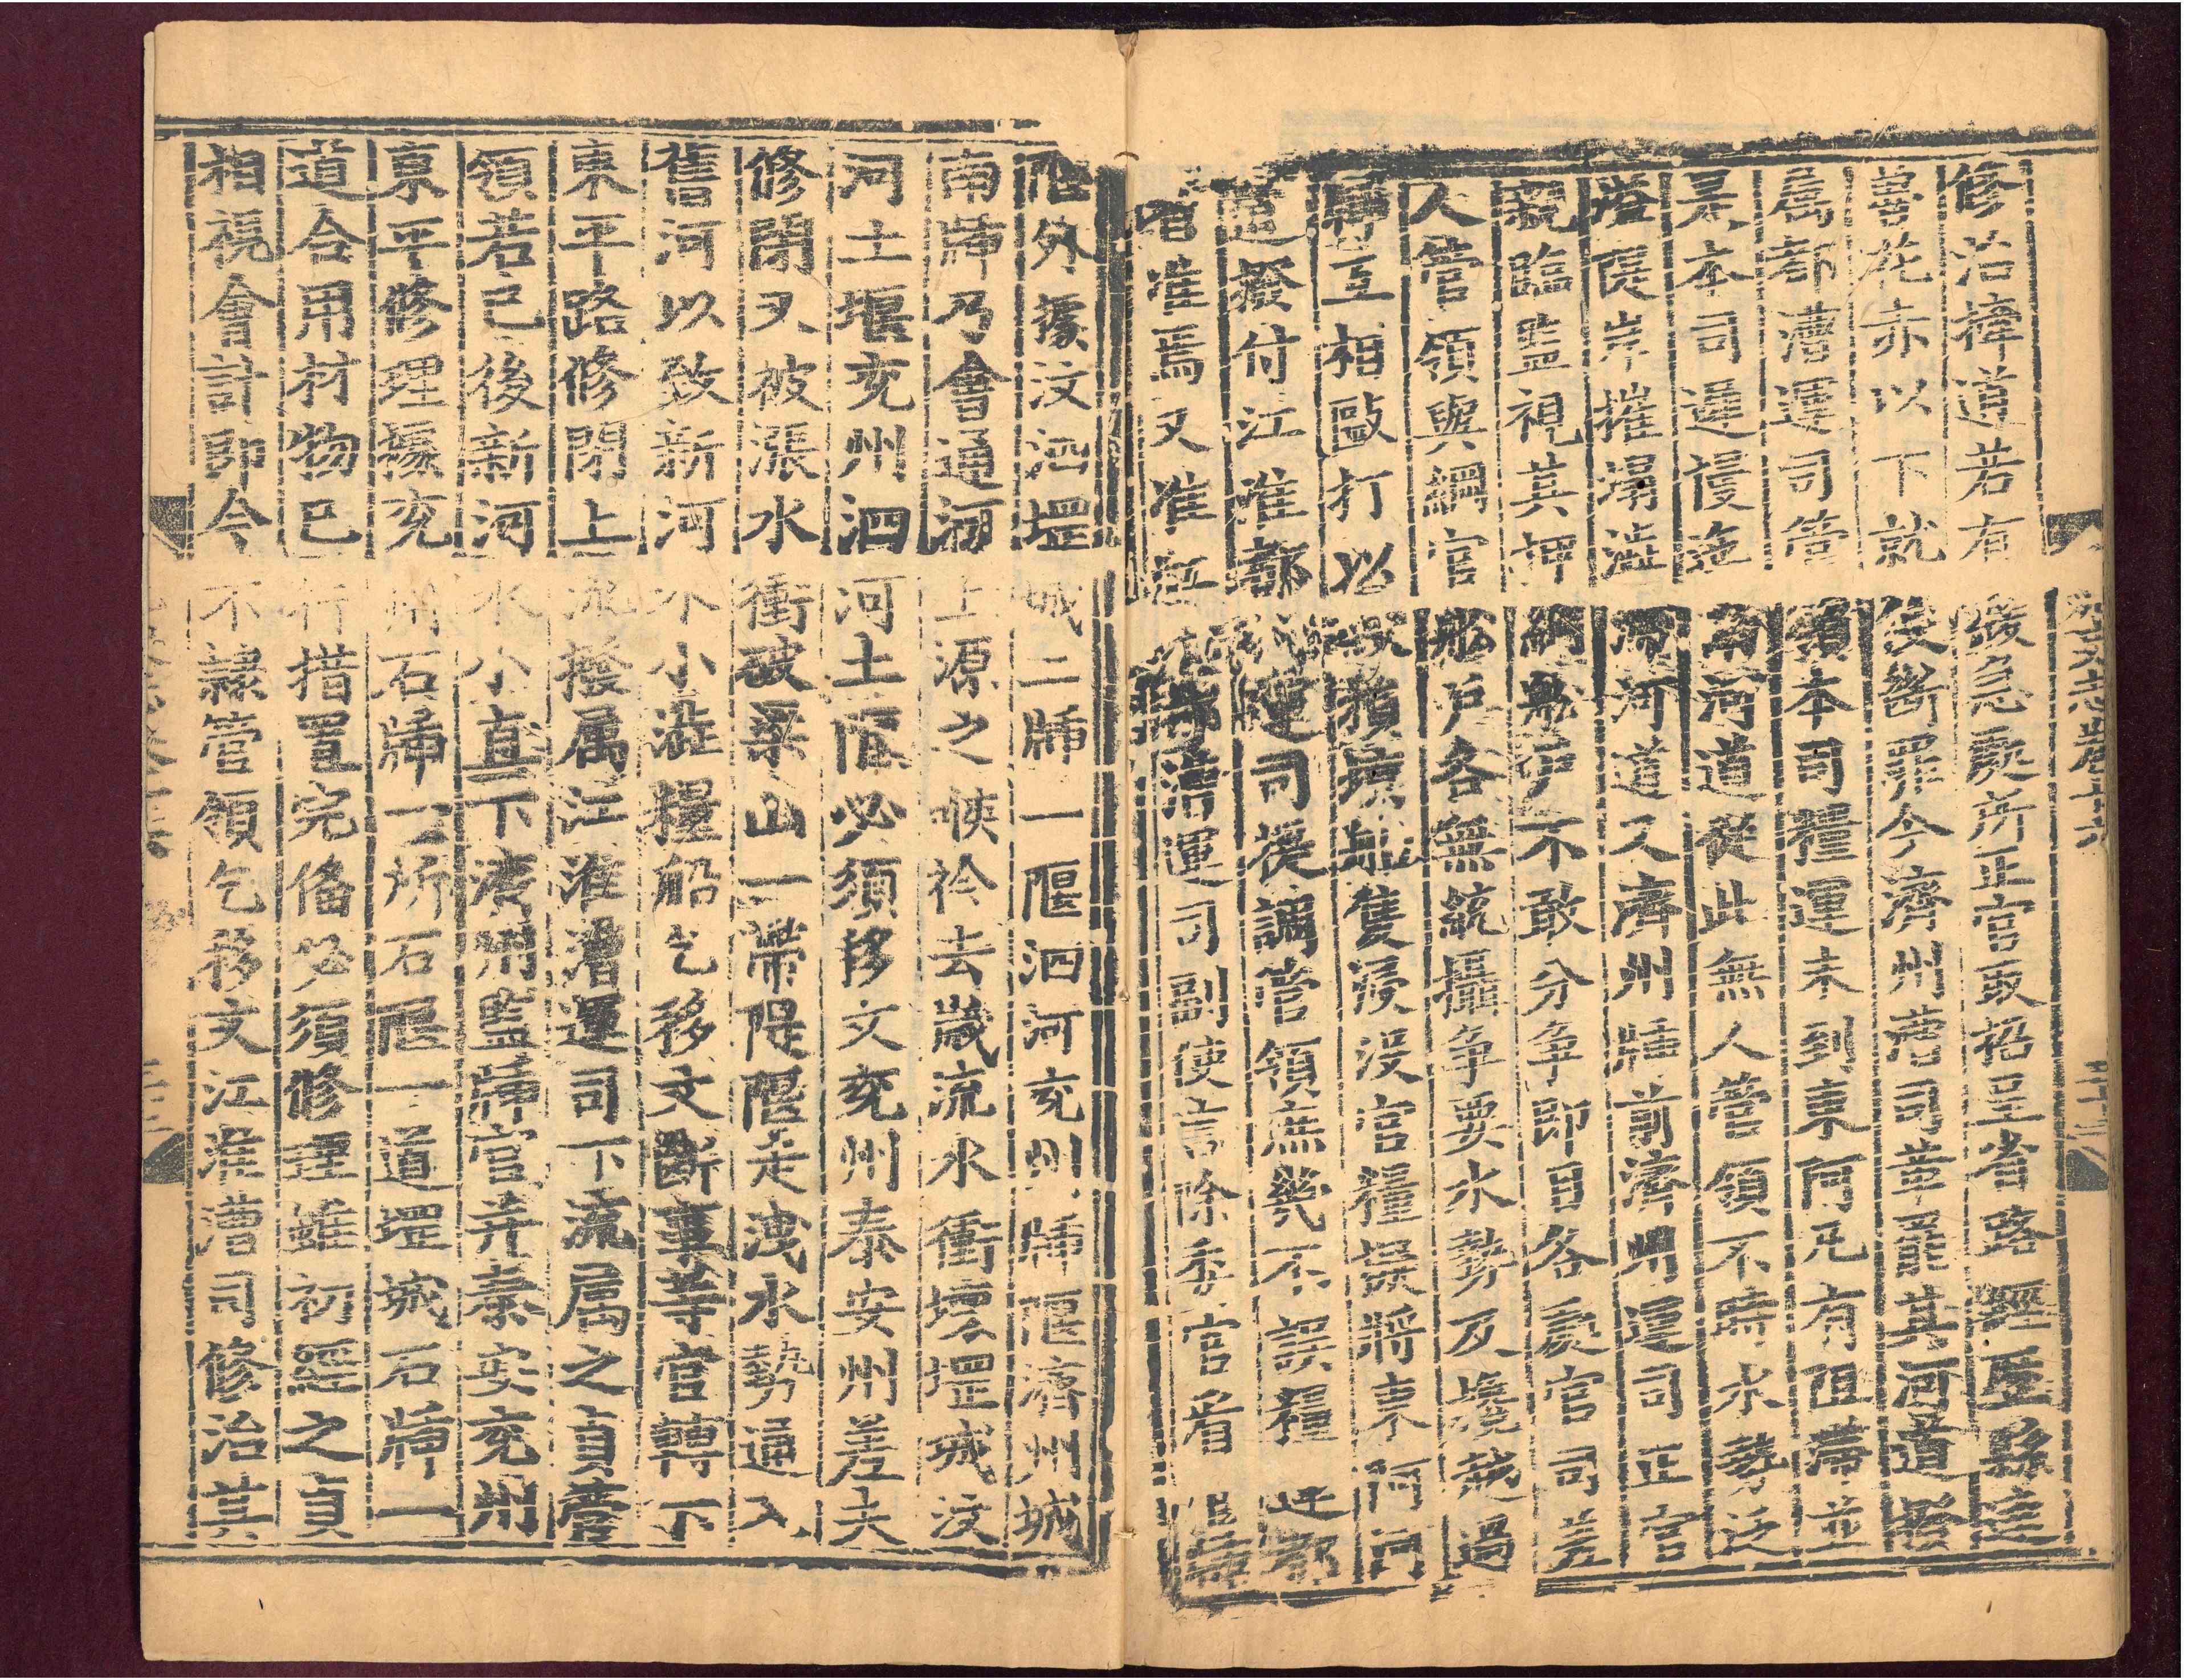 修治禆道若有緩急處所正官取招呈省路經歷縣達
喜花赤以下就便斷罪今濟州漕司革罷其河道撥
属都漕運司管領本司糧運未到東阿凡有阻滯並
是本司遲慢迤南河道從此無人管領不時水勢泛
漲隄岸摧塌澁滯河道又濟州牐前濟州運司正官
親臨監視其押綱船户不敢分争即目各處官司差
人管領與綱官船户各無統攝争要水勢及攙越過
牐互相毆打以致損壞船隻浸没官糧擬將東阿河
道撥付江淮都漕運司提調管領庶幾不誤糧運都
省准焉又准江淮都漕運司副使言除委官看管濟
堰外據汶泗堽城二牐一堰泗河兖州牐堰濟州城
南牐乃會通河上源之喉衿去歲流水衝壞堽城汶
河土堰兖州泗河土堰必須移文兖州泰安州差夫
修閉又被漲水衝破梁山一帶隄堰走洩水勢通入
舊河以致新河水小澁糧船乞移文斷事等官轉下
東平路修閉上流撥属江淮漕運司下流属之貟管
領若已後新河水小直下濟州監牐官并泰安兖州
東平修理據兖州石牐一所石堰一道堽城石牐一
道合用材物已行措置完俻必須修理雖初經之貟
相視會計即今不隷管領乞移文江淮漕司修治其